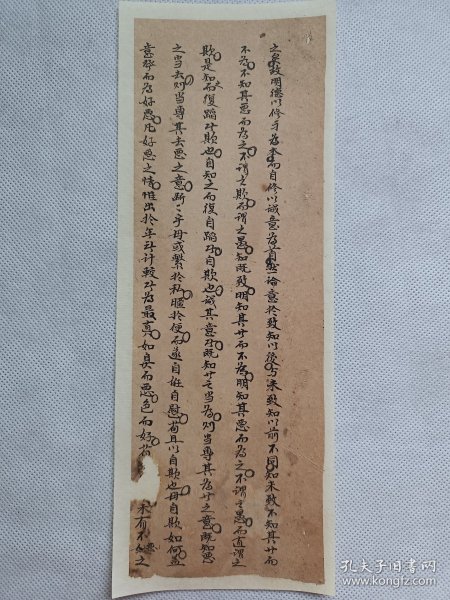 之矣故明德以修身為本而自修以誠意為首然論意於致知以後与未致知以前不同知未致不知其廿而
不為不知其惡而為之不謂之欺而謂之愚知既致明知其廿而不為明知其惡而為之不謂之愚而直謂之
欺是知而復蹈之欺也自知之而復自蹈之自欺也誠其意者既知廿之當為則當專其為廿之意既知惡
之當去則當專其去惡之意斷〻乎毋或繫於私暱於便而遂自誑自慰苟且以自欺也毋自欺如何蓋
意發而為好惡凡好惡之情惟出於年計較者為最真如臭而惡色而好
未有不知之
孔夫子旧书网
book.kongfz.com